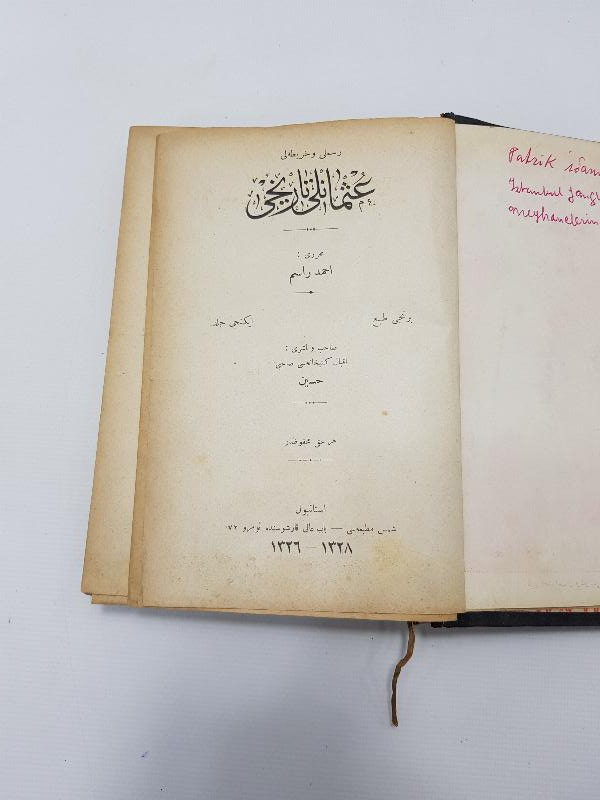 رسملی و خریطه‌لی
عثمانلی تاریخی
محرری :
احمد راسم
برنجی طبع
ایکنجی جلد
صاحب و ناشری :
اقبال کتبخانه‌سی صاحبی
حسین
هر حق محفوظدر
استانبول
شمس مطبعه‌سی — باب عالی قارشوسنده نومرو ٧٢
١٣٢٦ — ١٣٢٨
Patrik
İstanbul
meyhanelerin